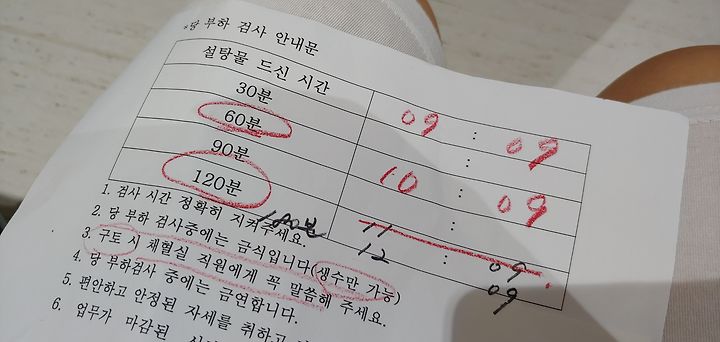 *당 부하 검사 안내문
설탕물 드신 시간 09 : 09
30분 :
60분 10 : 09
90분 :
120분 11 : 09
180분 12 09
1. 검사 시간 정확히 지켜주세요.
2. 당 부하 검사중에는 금식입니다(생수만 가능)
3. 구토 시 채혈실 직원에게 꼭 말씀해 주세요.
4. 당 부하검사 중에는 금연합니다.
5. 편안하고 안정된 자세를 취하고
6. 업무가 마감된